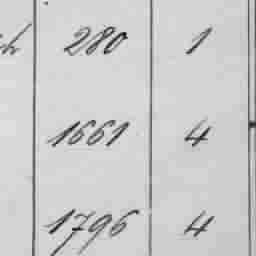 280 1
1661 4
1796 4